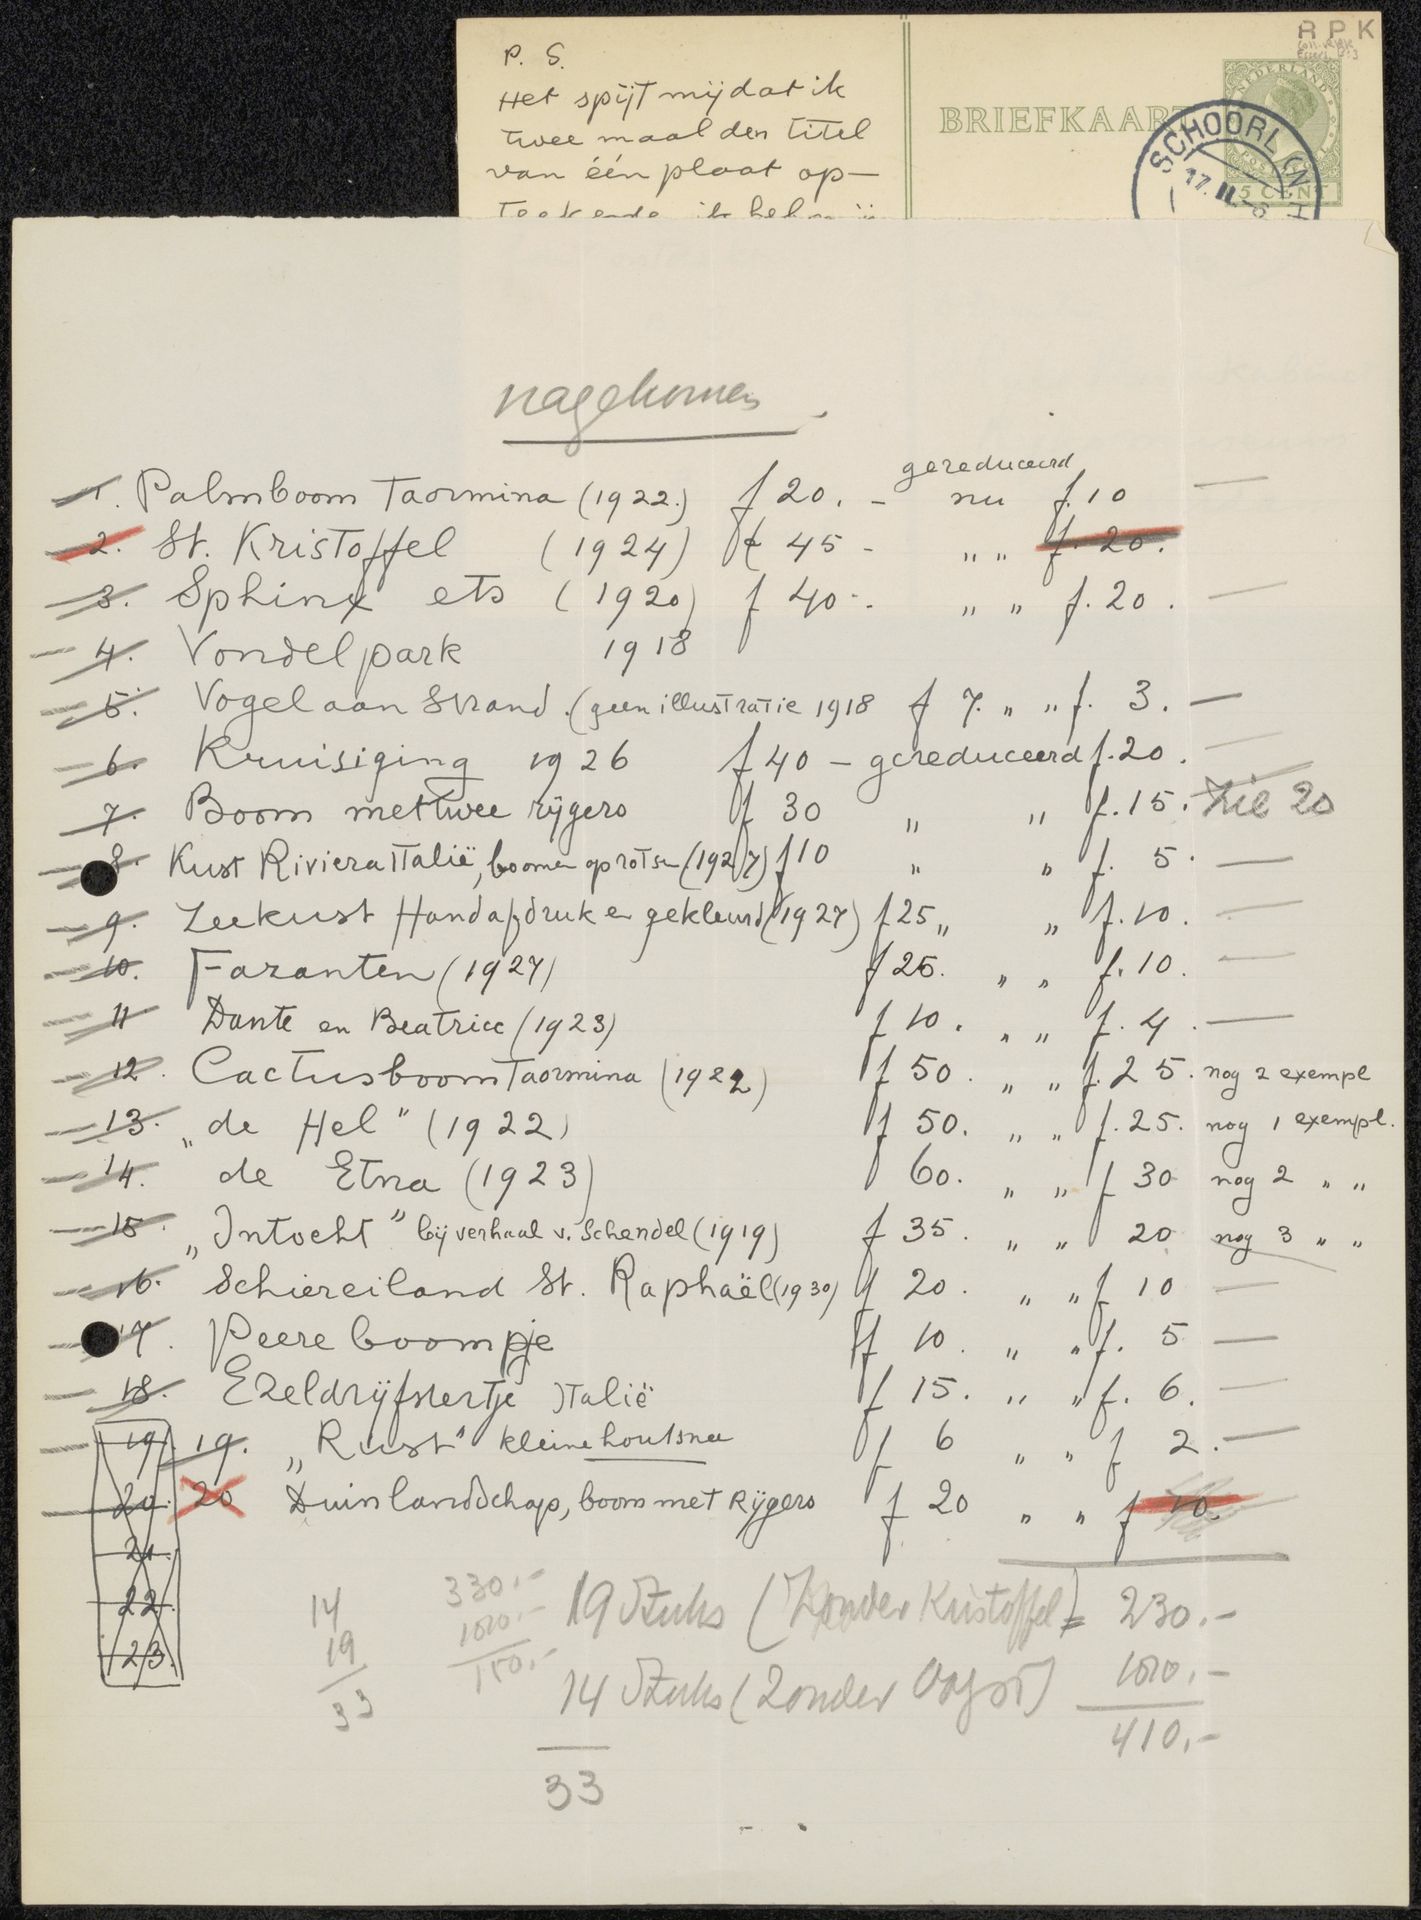 P. S.
Het spijt mij dat ik
twee maal den titel
van één plaat op-
RPK
BRIEFKAART
NEDERLAND
5 CENT
SCHOORL (N H
17.II
nagekomen
gereduceerd
1. Palmboom Taormina (1922.) f 20. - nu f. 10 —
2. St. Kristoffel (1924) f 45 - " " f. 20.
3. Sphinx ets (1920) f 40 -. " " f. 20. —
4. Vondelpark 1918
5. Vogel aan Strand. (geen illustratie 1918 f 7. " " f. 3. —
6. Kruisiging 1926 f 40 - gereduceerd f. 20. —
7. Boom met twee rijgers f 30 " " f. 15. zie 20
8. Kust Riviera Italië, boomen op rotsen (1927) f 10 " " f. 5. —
9. Zeekust Handafdruk en gekleurd (1927) f 25 " " f. 10. —
10. Fazanten (1927) f 25. " " f. 10. —
11 Dante en Beatrice (1923) f 10. " " f. 4. —
12. Cactusboom Taormina (1922) f 50. " " f. 25. nog 2 exempl
13. "de Hel" (1922) f 50. " " f. 25. nog 1 exempl.
14. de Etna (1923) f 60. " " f 30 nog 2 " "
15. "Intocht" bij verhaal v. Schendel (1919) f 35. " " 20 nog 3 " "
16. Schiereiland St. Raphaël (1930) f 20. " " f 10 —
17. Peereboompje f 10. " " f. 5 —
18. Ezeldrijfstertje Italië f 15. " " f. 6. —
19. 19. "Rust" kleine houtsnee f 6 " " f 2. —
20. 20 Duinlandschap, boom met Rijgers f 20 " " f 10.
21.
22.
23.
14
19
33
330.-
19 Stuks (Zonder Kristoffel) = 230.-
14 Stuks (Zonder
410.-
33